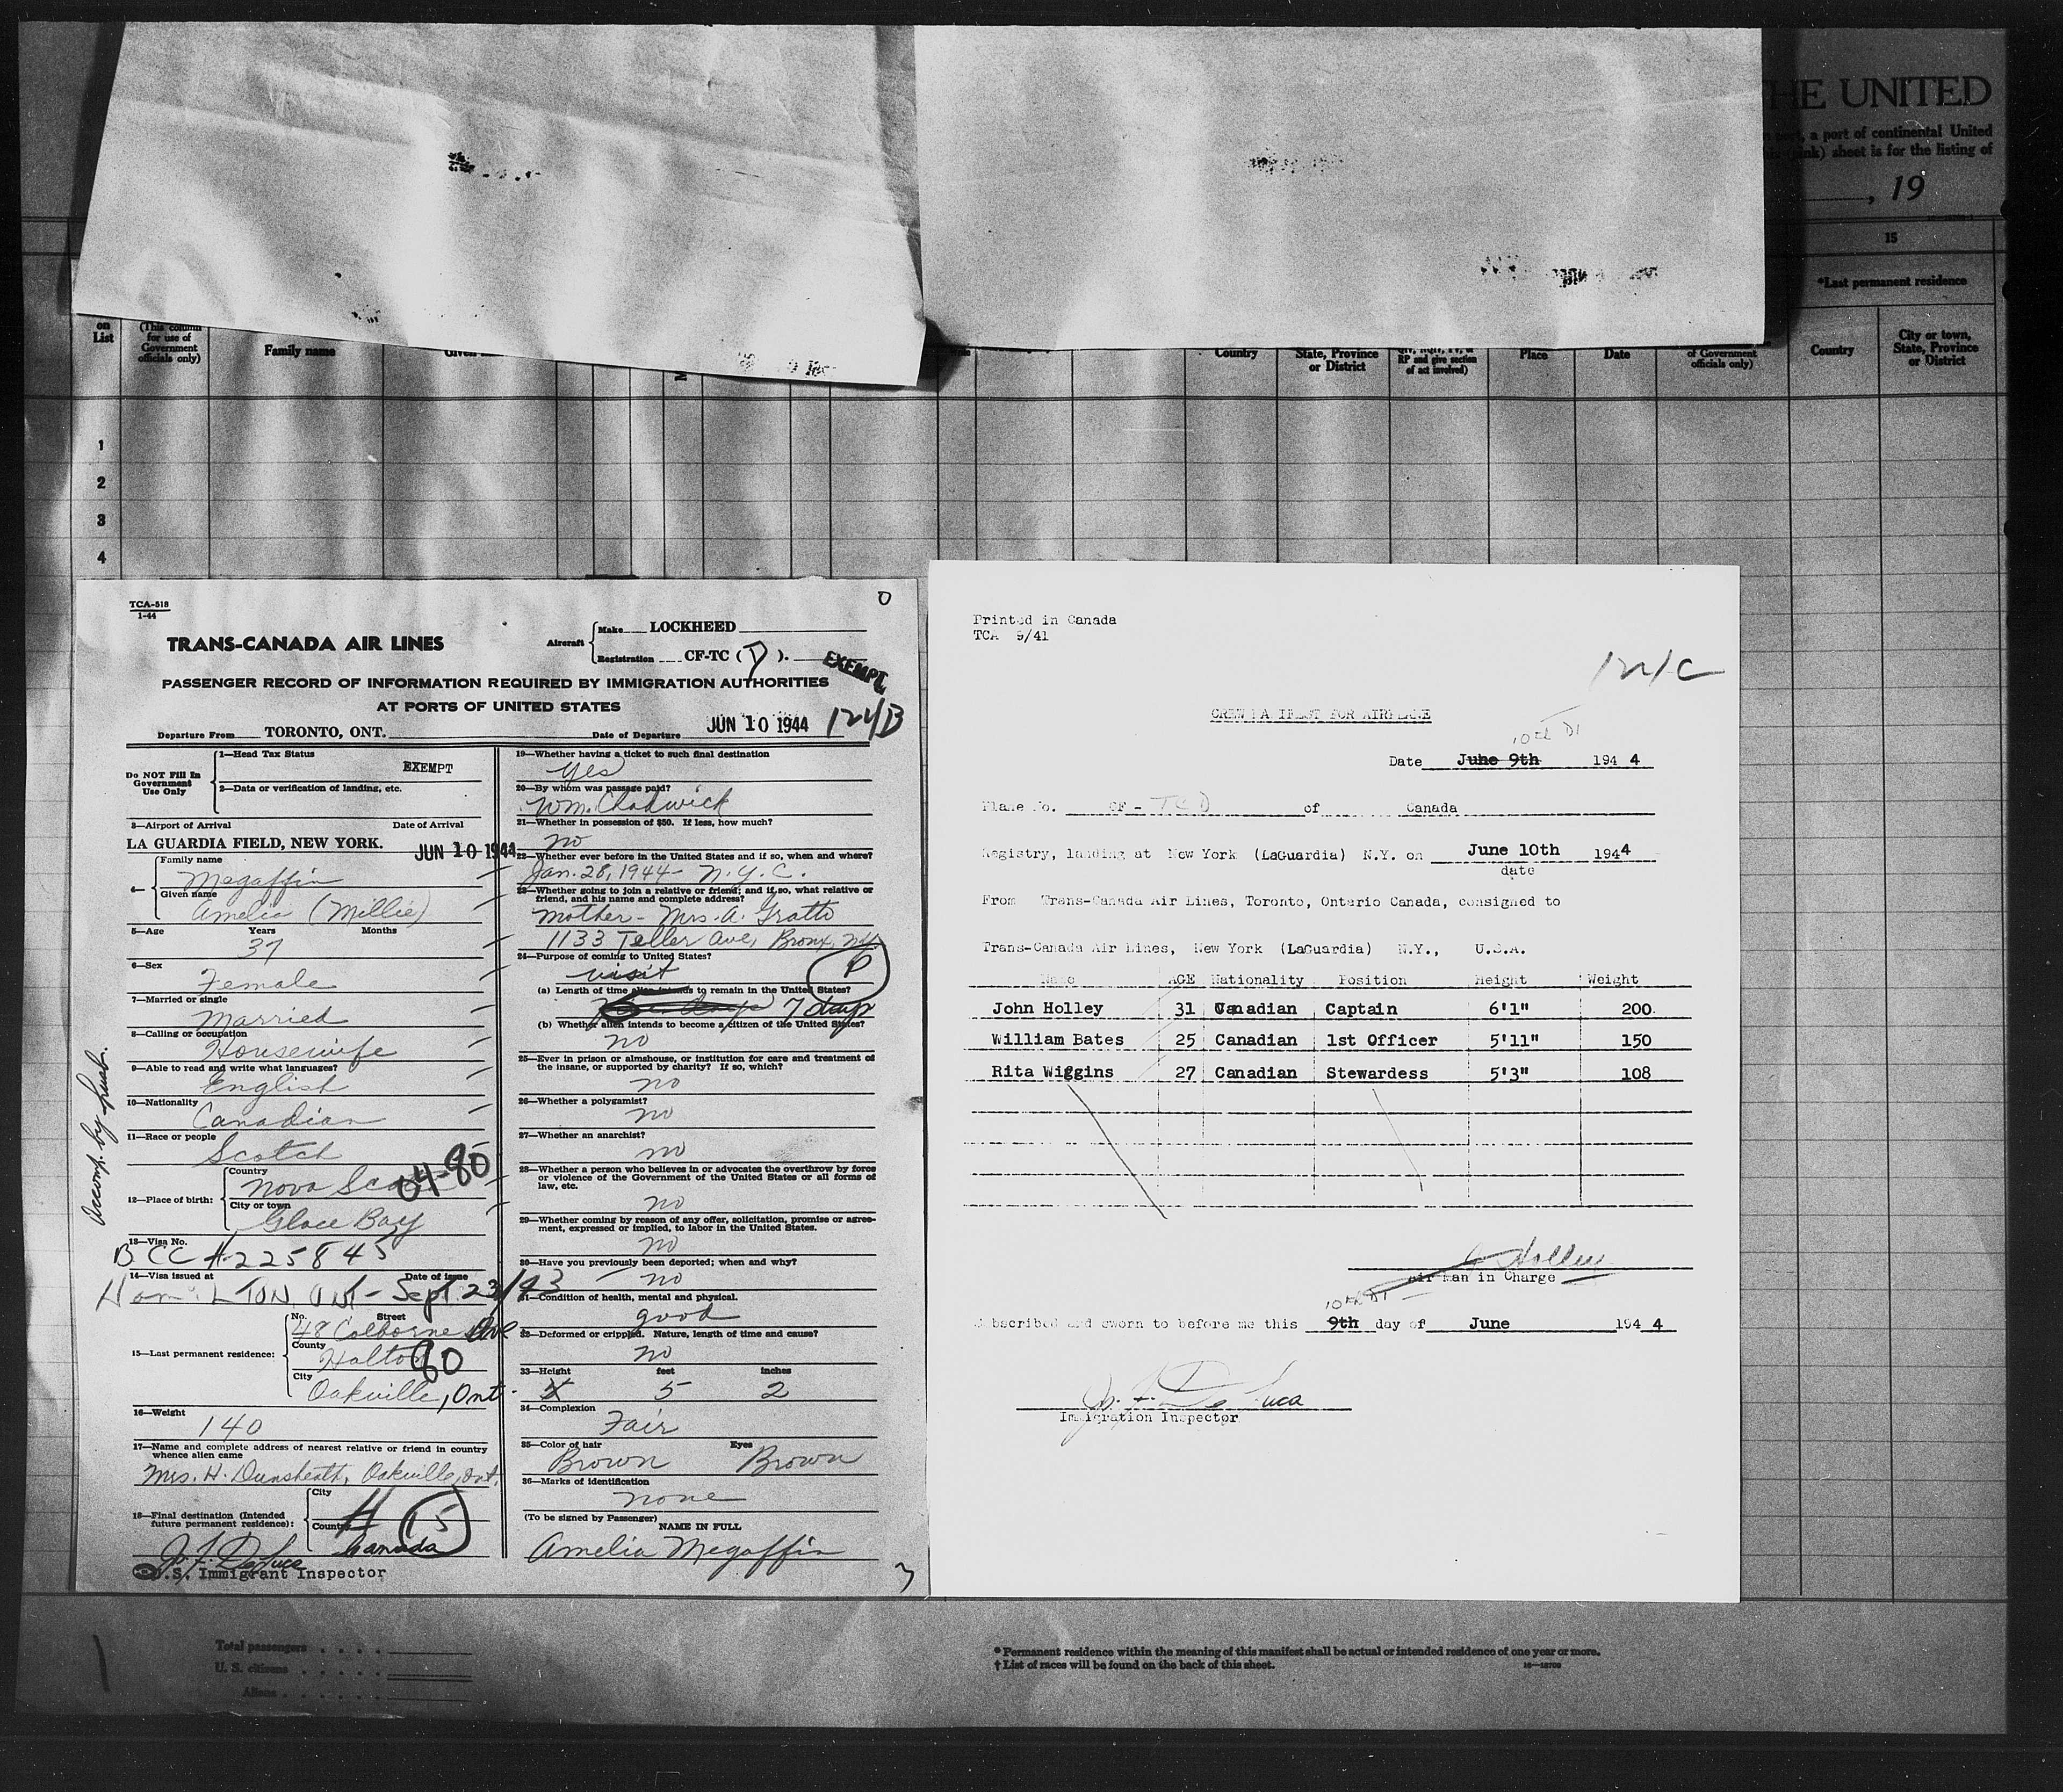 THE UNITED
port, a port of continental United
(pink) sheet is for the listing of
, 19
15
*Last permanent residence
on
List
(This column
for use of
Government
officials only)
Family name
Country
State, Province
or District
RP and give section
of act involved)
Place
Date
of Government
officials only)
Country
City or town,
State, Province
or District
1
2
3
4
TCA-518
1-44
0
TRANS-CANADA AIR LINES
Aircraft
Make LOCKHEED
Registration CF-TC (D).
EXEMPT
PASSENGER RECORD OF INFORMATION REQUIRED BY IMMIGRATION AUTHORITIES
AT PORTS OF UNITED STATES
Departure From TORONTO, ONT. Date of Departure JUN 10 1944
124/B
Do NOT Fill In
Government
Use Only
1—Head Tax Status
EXEMPT
2—Data or verification of landing, etc.
3—Airport of Arrival Date of Arrival
LA GUARDIA FIELD, NEW YORK. JUN 10 1944
4—
Family name
Megaffin
Given name
Amelia (Millie)
5—Age Years Months
37
6—Sex
Female
7—Married or single
Married
8—Calling or occupation
Housewife
9—Able to read and write what languages?
English
10—Nationality
Canadian
11—Race or people
Scotch
12—Place of birth:
Country
Nova Scotia
04-80
City or town
Glace Bay
13—Visa No.
BCC #225845
14—Visa issued at Date of issue
Hamilton, Ont - Sept. 23/43
15—Last permanent residence:
No. Street
48 Colborne Ave
County
Halton
80
City
Oakville, Ont.
16—Weight
140
17—Name and complete address of nearest relative or friend in country
whence alien came
Mrs. H. Dunsheath, Oakville, Ont.
18—Final destination (Intended
future permanent residence):
City
County
Canada
15
J. F. De Luca
U.S. Immigrant Inspector
Accomp. by husb.
19—Whether having a ticket to such final destination
Yes
20—By whom was passage paid?
Wm. Chadwick
21—Whether in possession of $50. If less, how much?
no
22—Whether ever before in the United States and if so, when and where?
Jan. 28, 1944 - N.Y.C.
23—Whether going to join a relative or friend; and if so, what relative or
friend, and his name and complete address?
Mother - Mrs. A. Gratto
1133 Teller Ave, Bronx, NY.
24—Purpose of coming to United States?
visit
P
(a) Length of time alien intends to remain in the United States?
7 days
(b) Whether alien intends to become a citizen of the United States?
no
25—Ever in prison or almshouse, or institution for care and treatment of
the insane, or supported by charity? If so, which?
no
26—Whether a polygamist?
no
27—Whether an anarchist?
no
28—Whether a person who believes in or advocates the overthrow by force
or violence of the Government of the United States or all forms of
law, etc.
no
29—Whether coming by reason of any offer, solicitation, promise or agree-
ment, expressed or implied, to labor in the United States.
no
30—Have you previously been deported; when and why?
no
31—Condition of health, mental and physical.
good
32—Deformed or crippled. Nature, length of time and cause?
no
33—Height feet inches
5 2
34—Complexion
Fair
35—Color of hair Eyes
Brown Brown
36—Marks of identification
none
(To be signed by Passenger)
NAME IN FULL
Amelia Megaffin
Printed in Canada
TCA 9/41
124/C
CREW MANIFEST FOR AIRPLANE
10th DL
Date June 9th 194 4
Plane No. CF - TCD of Canada
Registry, landing at New York (LaGuardia) N.Y. on June 10th 1944
date
From Trans-Canada Air Lines, Toronto, Onterio Canada, consigned to
Trans-Canada Air Lines, New York (LaGuardia) N.Y., U.S.A.
Name AGE Nationality Position Height Weight
John Holley 31 Canadian Captain 6'1" 200
William Bates 25 Canadian 1st Officer 5'11" 150
Rita Wiggins 27 Canadian Stewardess 5'3" 108
J Holley
Air Man in Charge
10th DL
Subscribed and sworn to before me this 9th day of June 194 4
J. F. De Luca
Immigration Inspector
Total passengers
U. S. citizens
Aliens
* Permanent residence within the meaning of this manifest shall be actual or intended residence of one year or more.
† List of races will be found on the back of this sheet.